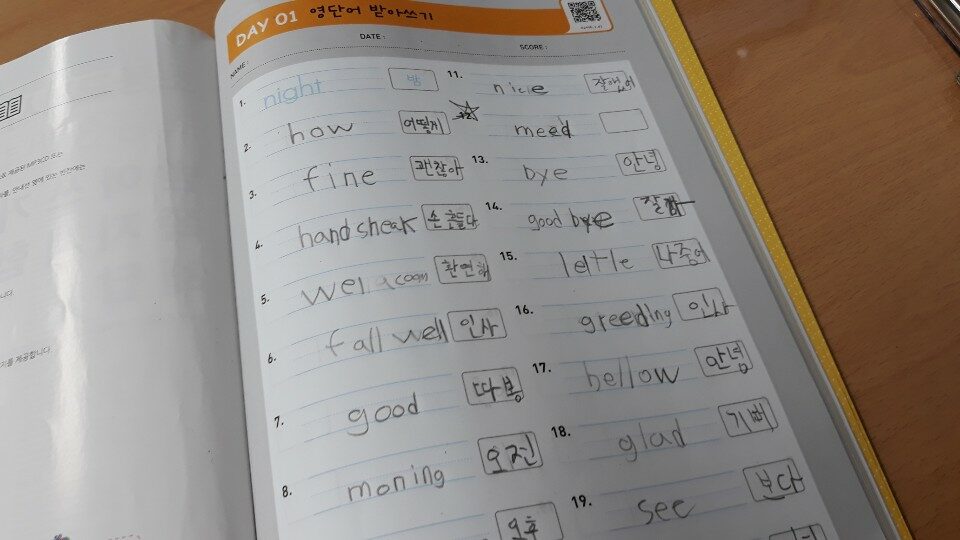 DAY 01 영단어 받아쓰기
NAME :
DATE :
SCORE :
1. night 밤
2. how 어떻게
3. fine 괜찮아
4. handsheak 손흔들다
5. welacoom 환연해
6. fallwell 인사
7. good 따봉
8. moning 오전
오후
11. nicie 잘됐어
12 meed
13. bye 안녕
14. good bye 잘가
15. lettle 나중에
16. greeding 인사
17. hellow 안녕
18. glad 기뻐
19. see 본다